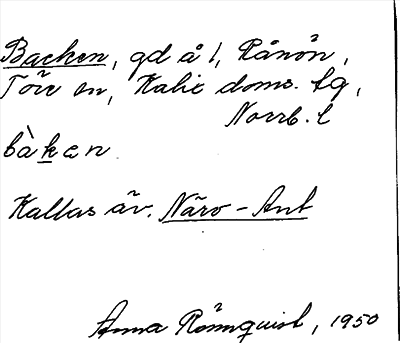 Backen, gd å 1, Rånön,
Töre sn, Kalix doms. tg,
Norrb. l
bàken
Kallas äv. Näro-Ant
Anna Rönnquist, 1950